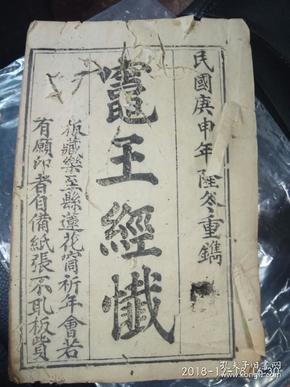 民國庚申年陸冬重鐫
竈王經懺
板藏樂至縣蓮花窩祈年會若
有願印者自備紙張不取板貲
2018-12-1
孔夫子旧书网